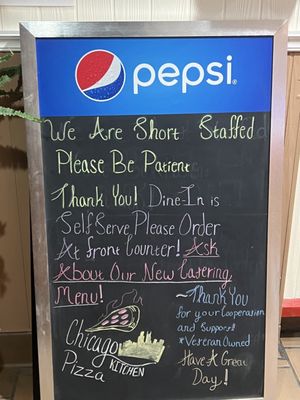 pepsi
We Are Short Staffed
Please Be Patient
Thank You! Dine-In is
Self Serve, Please Order
At front Counter! Ask
About Our New Catering
Menu!
Chicago
KITCHEN
Pizza
~Thank You
for your Cooperation
and Support!
*Veteran Owned
Have A Great
Day!